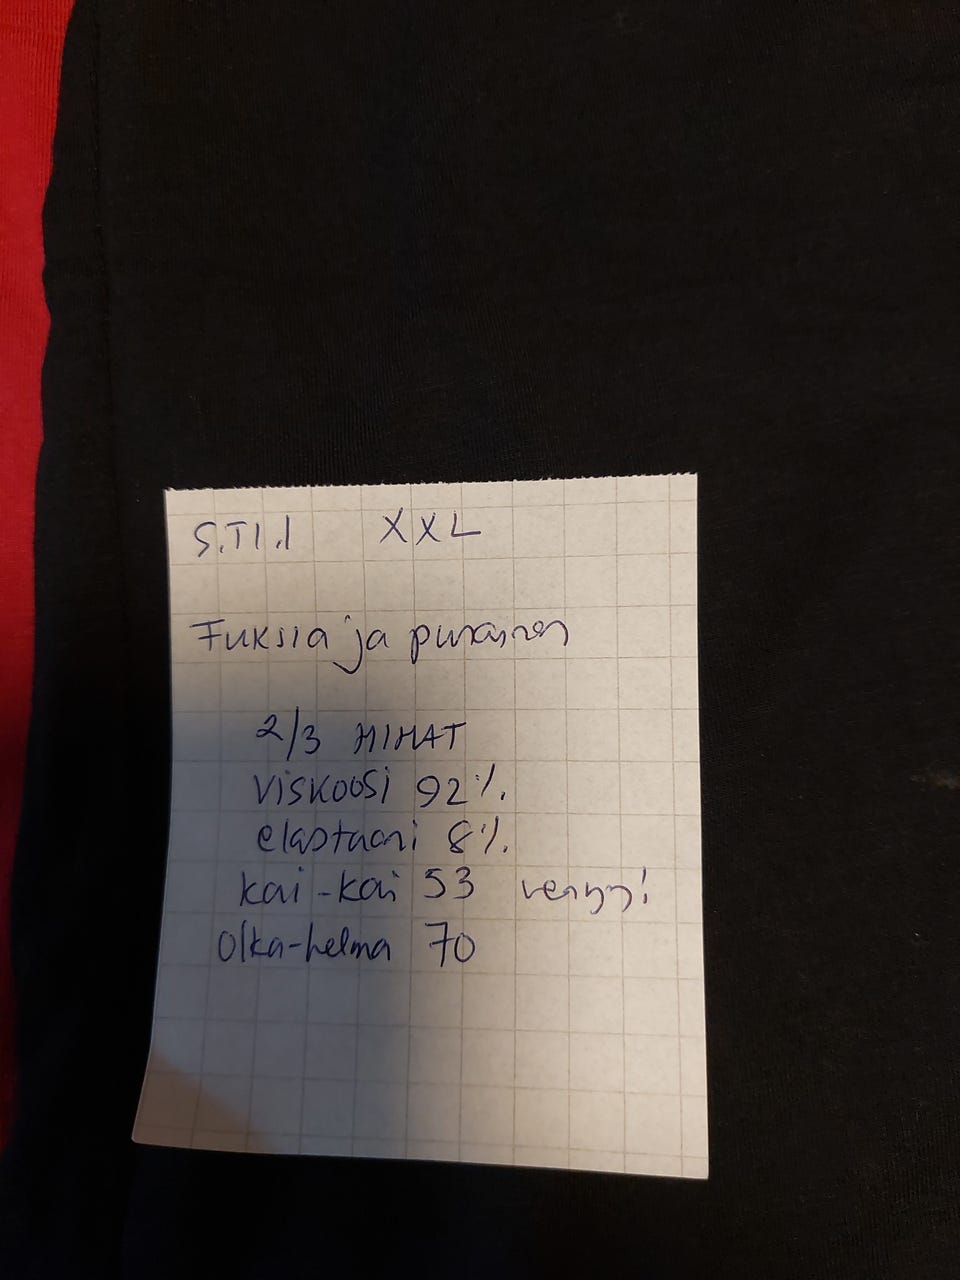 S.TI.I XXL
Fuksia ja punainen
2/3 HIHAT
Viskoosi 92%.
elastaani 8%.
kai-kai 53 venyy!
Olka-helma 70